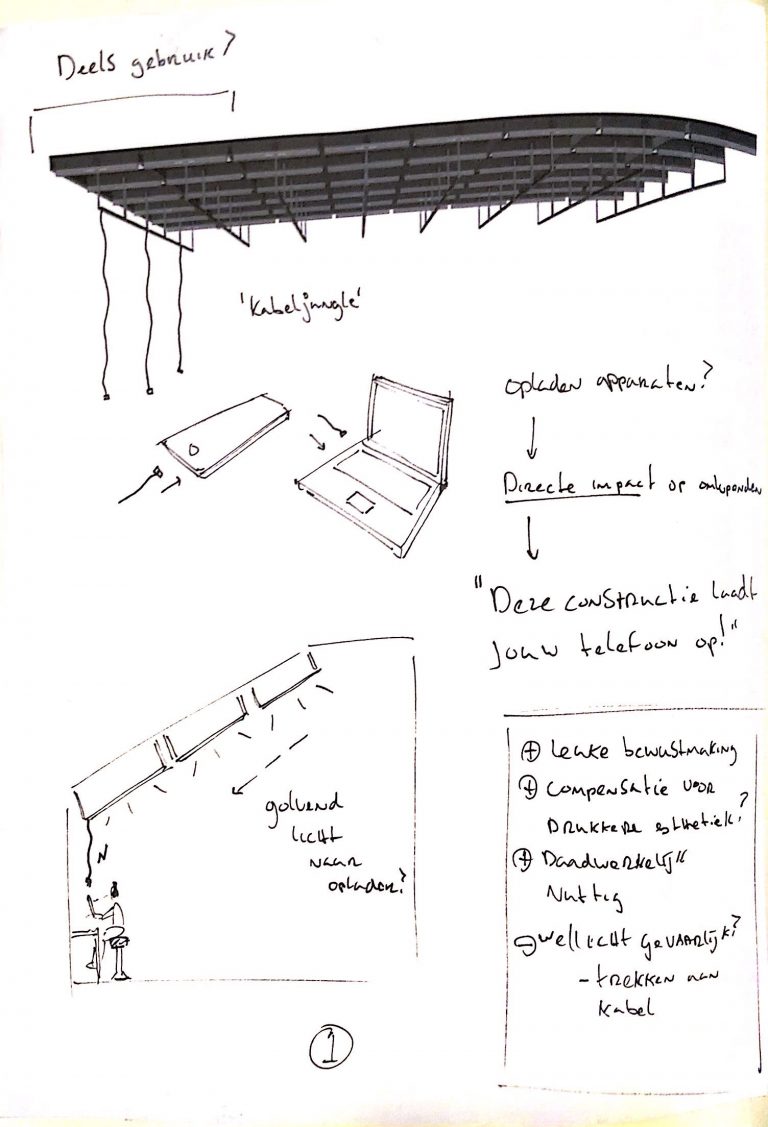 Deels gebruik?
'Kabeljungle'
opladen apparaten?
Directe impact op omstanders
"Deze constructie laadt
jouw telefoon op!"
golvend
licht
naar
opladen?
+ Leuke bewustmaking
+ Compensatie voor
drukkere esthetiek?
+ Daadwerkelijk
Nuttig
- wellicht gevaarlijk?
- trekken aan
kabel
1